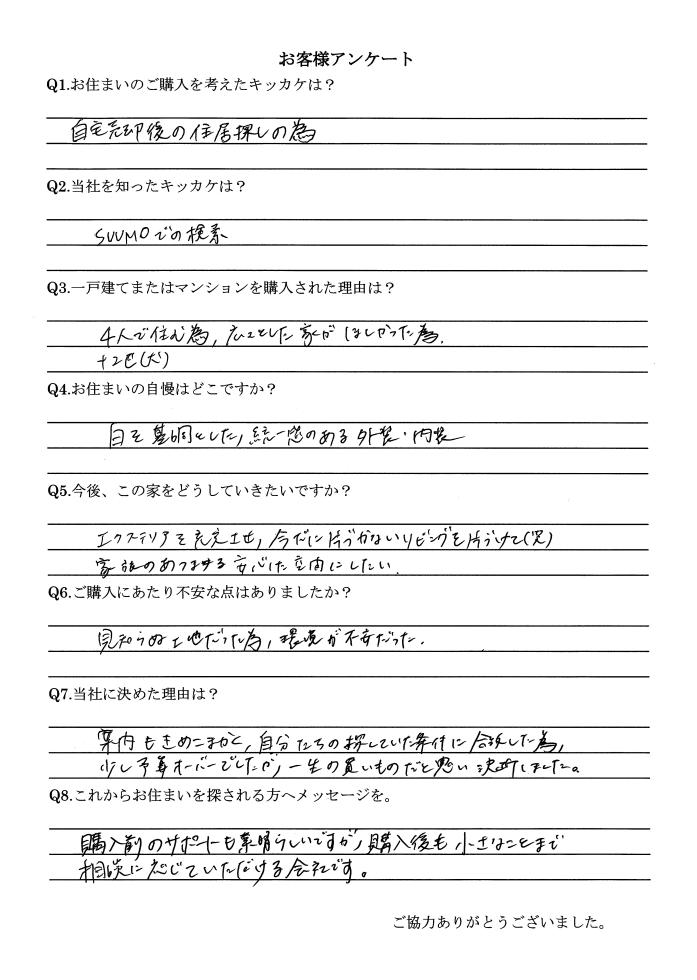 お客様アンケート
Q1.お住まいのご購入を考えたキッカケは？
自宅売却後の住居探しの為
Q2.当社を知ったキッカケは？
SUUMOでの検索
Q3.一戸建てまたはマンションを購入された理由は？
4人で住む為,広々とした家がほしかった為.
+2匹(犬)
Q4.お住まいの自慢はどこですか？
白を基調とした,統一感のある外装・内装
Q5.今後、この家をどうしていきたいですか？
エクステリアを充実させ,今だに片づかないリビングを片づけて(笑)
家族のあつまる安心した空間にしたい.
Q6.ご購入にあたり不安な点はありましたか？
見知らぬ土地だった為,環境が不安だった.
Q7.当社に決めた理由は？
案内もきめこまかく,自分たちの探していた条件に合致した為,
少し予算オーバーでしたが,一生の買いものだと思い決断しました。
Q8.これからお住まいを探される方へメッセージを。
購入前のサポートも素晴らしいですが,購入後も小さなことまで
相談に応じていただける会社です。
ご協力ありがとうございました。